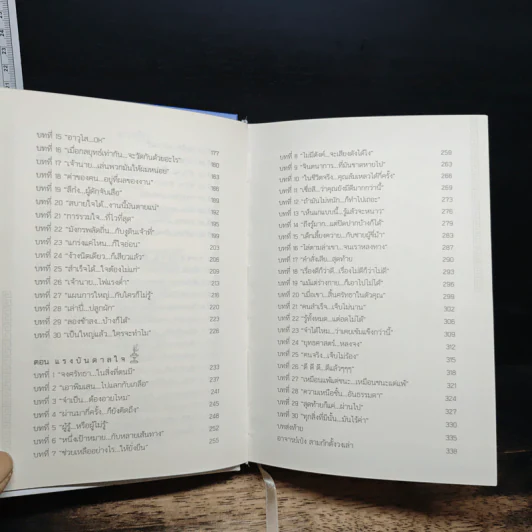 บทที่ 15 "อาวุโส...OK"
บทที่ 16 "เมื่อกลยุทธ์เท่ากัน...จะวัดกันด้วยอะไร" 177
บทที่ 17 "เจ้านาย...เล่นพวกมันให้เละหน่อย" 180
บทที่ 18 "ค่าของคน...อยู่ที่ผลของงาน" 183
บทที่ 19 "ลีกัง...ผู้ดักจับเสือ"
บทที่ 20 "สบายใจได้...งานนี้มันตายแน่"
บทที่ 21 "การรวมใจ...ที่ไวที่สุด" 197
บทที่ 22 "มังกรพลัดถิ่น...กับงูดินเจ้าที่" 200
บทที่ 23 "แกร่งแค่ไหน...ก็ใจอ่อน" 203
บทที่ 24 "ช้างนิดเดียว...ก็เสียวแล้ว" 206
บทที่ 25 "สำเร็จได้...ใจต้องไม่แกว่ง" 209
บทที่ 26 "เจ้านาย...ไฟแรงต่ำ" 213
บทที่ 27 "แผนการใหญ่...กับใครก็ไม่รู้" 216
บทที่ 28 "เล่าปี่...ปลูกผัก" 220
บทที่ 29 "ลองช้าลง...บ้างก็ได้" 224
บทที่ 30 "เป็นใหญ่แล้ว...ใครจะทำไม" 228
ตอน แรงบันดาลใจ
บทที่ 1 "จงศรัทธา...ในสิ่งที่ตนมี" 233
บทที่ 2 "เอาพิมเสน...ไปแลกกับเกลือ" 237
บทที่ 3 "จำเป็น...ต้องอายไหม" 241
บทที่ 4 "ผ่านมากี่ครั้ง...ก็ยังคิดถึง" 245
บทที่ 5 "ผู้รู้...หรือผู้ไม่รู้" 248
บทที่ 6 "หนึ่งเป้าหมาย...กับหลายเส้นทาง" 252
บทที่ 7 "ช่วยเหลืออย่างไร...ให้ยั่งยืน" 255
บทที่ 8 "ไม่มีตังค์...จะเสียงดังได้ไง" 259
บทที่ 9 "จินตนาการ...ที่มันขาดหายไป" 263
บทที่ 10 "ในชีวิตจริง...คุณล้มเหลวได้กี่ครั้ง" 266
บทที่ 11 "เชื่อดิ...ว่าคุณยังมีดีมากกว่านี้" 269
บทที่ 12 "ถ้ามันไม่หนัก...ก็ทำไปเถอะ" 272
บทที่ 13 "เห็นแกแบบนี้...รู้แล้วจะหนาว" 276
บทที่ 14 "ถึงรู้มาก...แต่ปิดปากบ้างก็ได้" 279
บทที่ 15 "เด็กเลี้ยงควาย...กับชายผู้ชี้นำ" 283
บทที่ 16 "ไล่ตามล่าเขา...จนเราหลงทาง" 287
บทที่ 17 "คำสั่งเสีย...สุดท้าย" 290
บทที่ 18 "เรื่องดีก็ว่าดี...เรื่องไม่ดีก็ว่าไม่ดี" 293
บทที่ 19 "แม้แต่ร่างกาย...ก็เอาไปไม่ได้" 295
บทที่ 20 "เมื่อเขา...สิ้นศรัทธาในตัวคุณ" 298
บทที่ 21 "คนสำเร็จ...เจ็บไม่นาน" 302
บทที่ 22 "รู้ทั้งหมด...แต่อดไม่ได้" 306
บทที่ 23 "จำได้ไหม...ว่าเคยเข้มแข็งกว่านี้" 309
บทที่ 24 "ยุทธศาสตร์...หลงจง" 312
บทที่ 25 "คนจริง...เจ็บไม่ร้อง" 315
บทที่ 26 "ดี ดี ดี...ดีแล้วๆๆๆ" 318
บทที่ 27 "เหมือนแพ้แต่ชนะ...เหมือนชนะแต่แพ้" 321
บทที่ 28 "ความเหนือชั้น...อันธรรมดา" 324
บทที่ 29 "สุดท้ายก็แค่...ผ่านไป" 327
บทที่ 30 "ทุกสิ่งที่มีนั้น...มันไร้ค่า" 330
บทส่งท้าย 335
อาจารย์เบ๊ง สามก๊กตั๊งวงเล่า 338